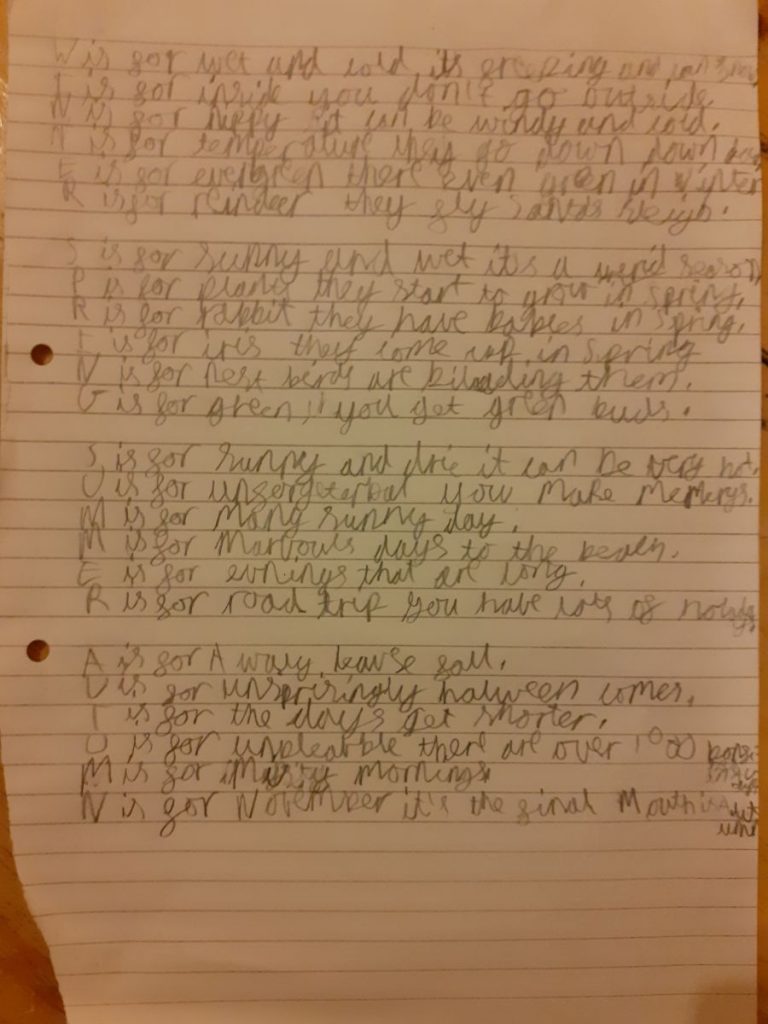 W is for wet and cold its freezing and can snow
I is for inside you don't go outside.
N is for nippy it can be windy and cold.
T is for temperature they go down down down
E is for evergreen there even green in winter
R is for reindeer they fly santas sleigh.
S is for sunny and wet it's a weird season,
P is for plants they start to grow in spring.
R is for rabbit they have babies in spring.
I is for iris they come up in spring
N is for nest birds are them.
G is for green, you get green buds.
S is for sunny and drie it can be very hot.
U is for unforgeterbal you make memerys.
M is for many sunny day.
M is for marvouls days to the beach.
E is for evnings that are long.
R is for road trip you have lots of
A is for A way leavse fall.
U is for unsprisingly halween comes.
T is for the days get shorter.
U is for there are over 1000
M is for Misity mornings
N is for November it's the final Mouth in Autumn